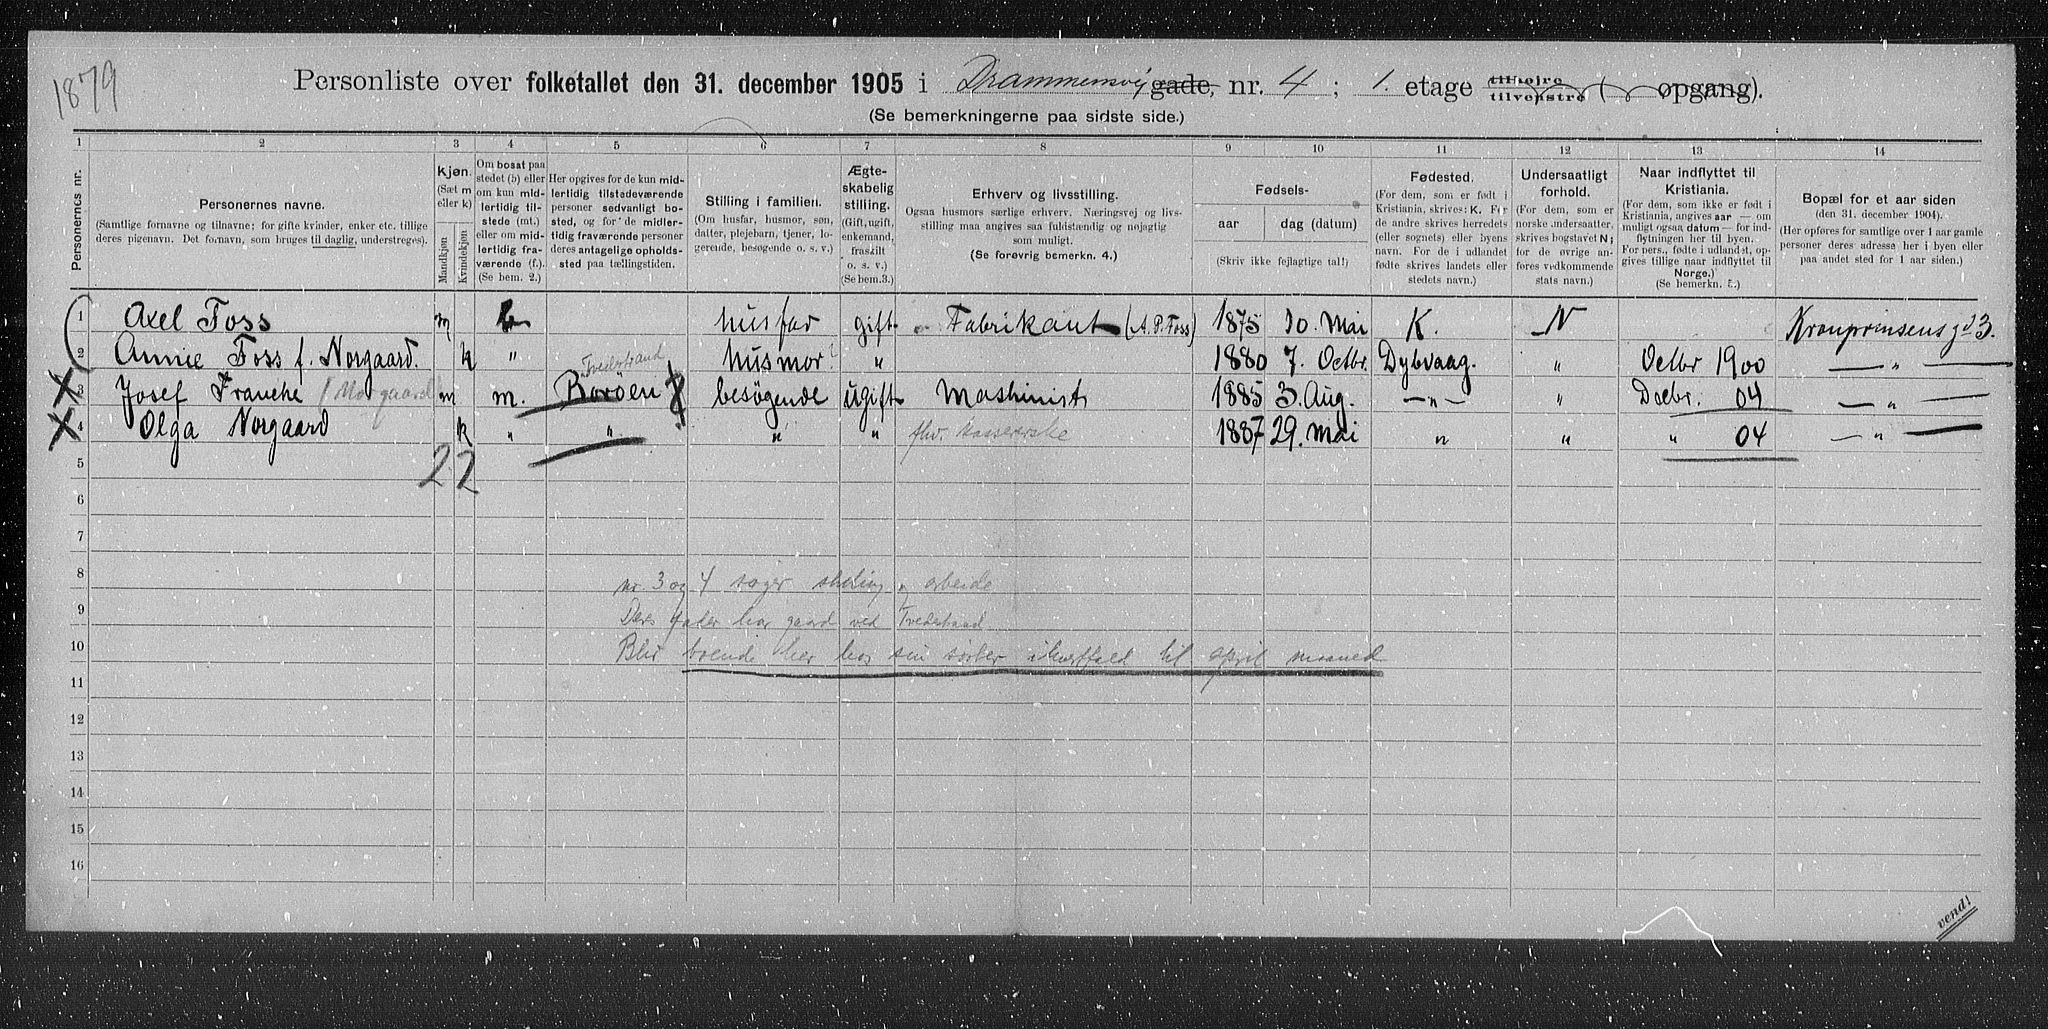 1879
Personliste over folketallet den 31. december 1905 i Drammensvej gade, nr. 4 ; 1. etage tilhøjre tilvenstre ( opgang).
(Se bemerkningerne paa sidste side.)
1 2 3 4 5 6 7 8 9 10 11 12 13 14
Personernes nr.
Personernes navne.
(Samtlige fornavne og tilnavne; for gifte kvinder, enker etc. tillige
deres pigenavn. Det fornavn, som bruges til daglig, understreges).
Kjøn.
(Sæt m
eller k)
Mandkjøn
Kvindekjøn
Om bosat paa
stedet (b) eller
om kun mid-
lertidig til-
stede (mt.)
eller om mid-
lertidig fra-
værende (f.).
(Se bem. 2.)
Her opgives for de kun mid-
lertidig tilstedeværende
personer sedvanligt bo-
sted, og for de midler-
tidig fraværende personer
deres antagelige opholds-
sted paa tællingstiden.
Stilling i familien.
(Om husfar, husmor, søn,
datter, plejebarn, tjener, lo-
gerende, besøgende o. s. v.)
Ægte-
skabelig
stilling.
(Gift, ugift,
enkemand,
fraskilt
o. s. v.)
(Se bem.3.)
Erhverv og livsstilling.
Ogsaa husmors særlige erhverv. Næringsvej og livs-
stilling maa angives saa fuldstændig og nøjagtig
som muligt.
(Se forøvrig bemerkn. 4.)
Fødsels-
aar dag (datum)
(Skriv ikke fejlagtige tal!)
Fødested.
(For dem, som er født i
Kristiania, skrives: K. For
de andre skrives herredets
(eller sognets) eller byens
navn. For de i udlandet
fødte skrives landets eller
stedets navn.)
Undersaatligt
forhold.
(For dem, som er
norske undersaatter,
skrives bogstavet N;
for de øvrige an-
føres vedkommende
stats navn.)
Naar indflyttet til
Kristiania.
(For dem, som ikke er født i
Kristiania, angives aar — om
muligt ogsaa datum — for ind-
flytningen her til byen.
For pers., fødte i udlandet, op-
gives tillige naar indflyttet til
Norge.)
(Se bemerkn. 5.)
Bopæl for et aar siden
(den 31. december 1904).
(Her opføres for samtlige over 1 aar gamle
personer deres adresse her i byen eller
paa andet sted for 1 aar siden.)
1 Axel Foss m b husfar gift Fabrikant (A.P. Foss) 1875 10. Mai K. N Kronprinsens gd 3.
2 Annie Foss f. Norgaard. k " husmor " 1880 7. Octbr. Dybvaag. " Octbr 1900 — " —
Tvedestrand
3 Josef Franche / Norgaard m m. Borøen besøgende ugift Maskinist 1885 3. Aug. — " — " Decbr. 04 — " —
4 Olga Norgaard k " " " " fhv. Kassererske 1887 29. Mai " " " 04 — " —
5 22
6
7
8 nr. 3 og 4 søger stilling og arbeide
9 Deres fader har gaard ved Tvedestrand
10 Blir boende her hos sin søster ihvertfald til april maaned
11
12
13
14
15
16
vend!